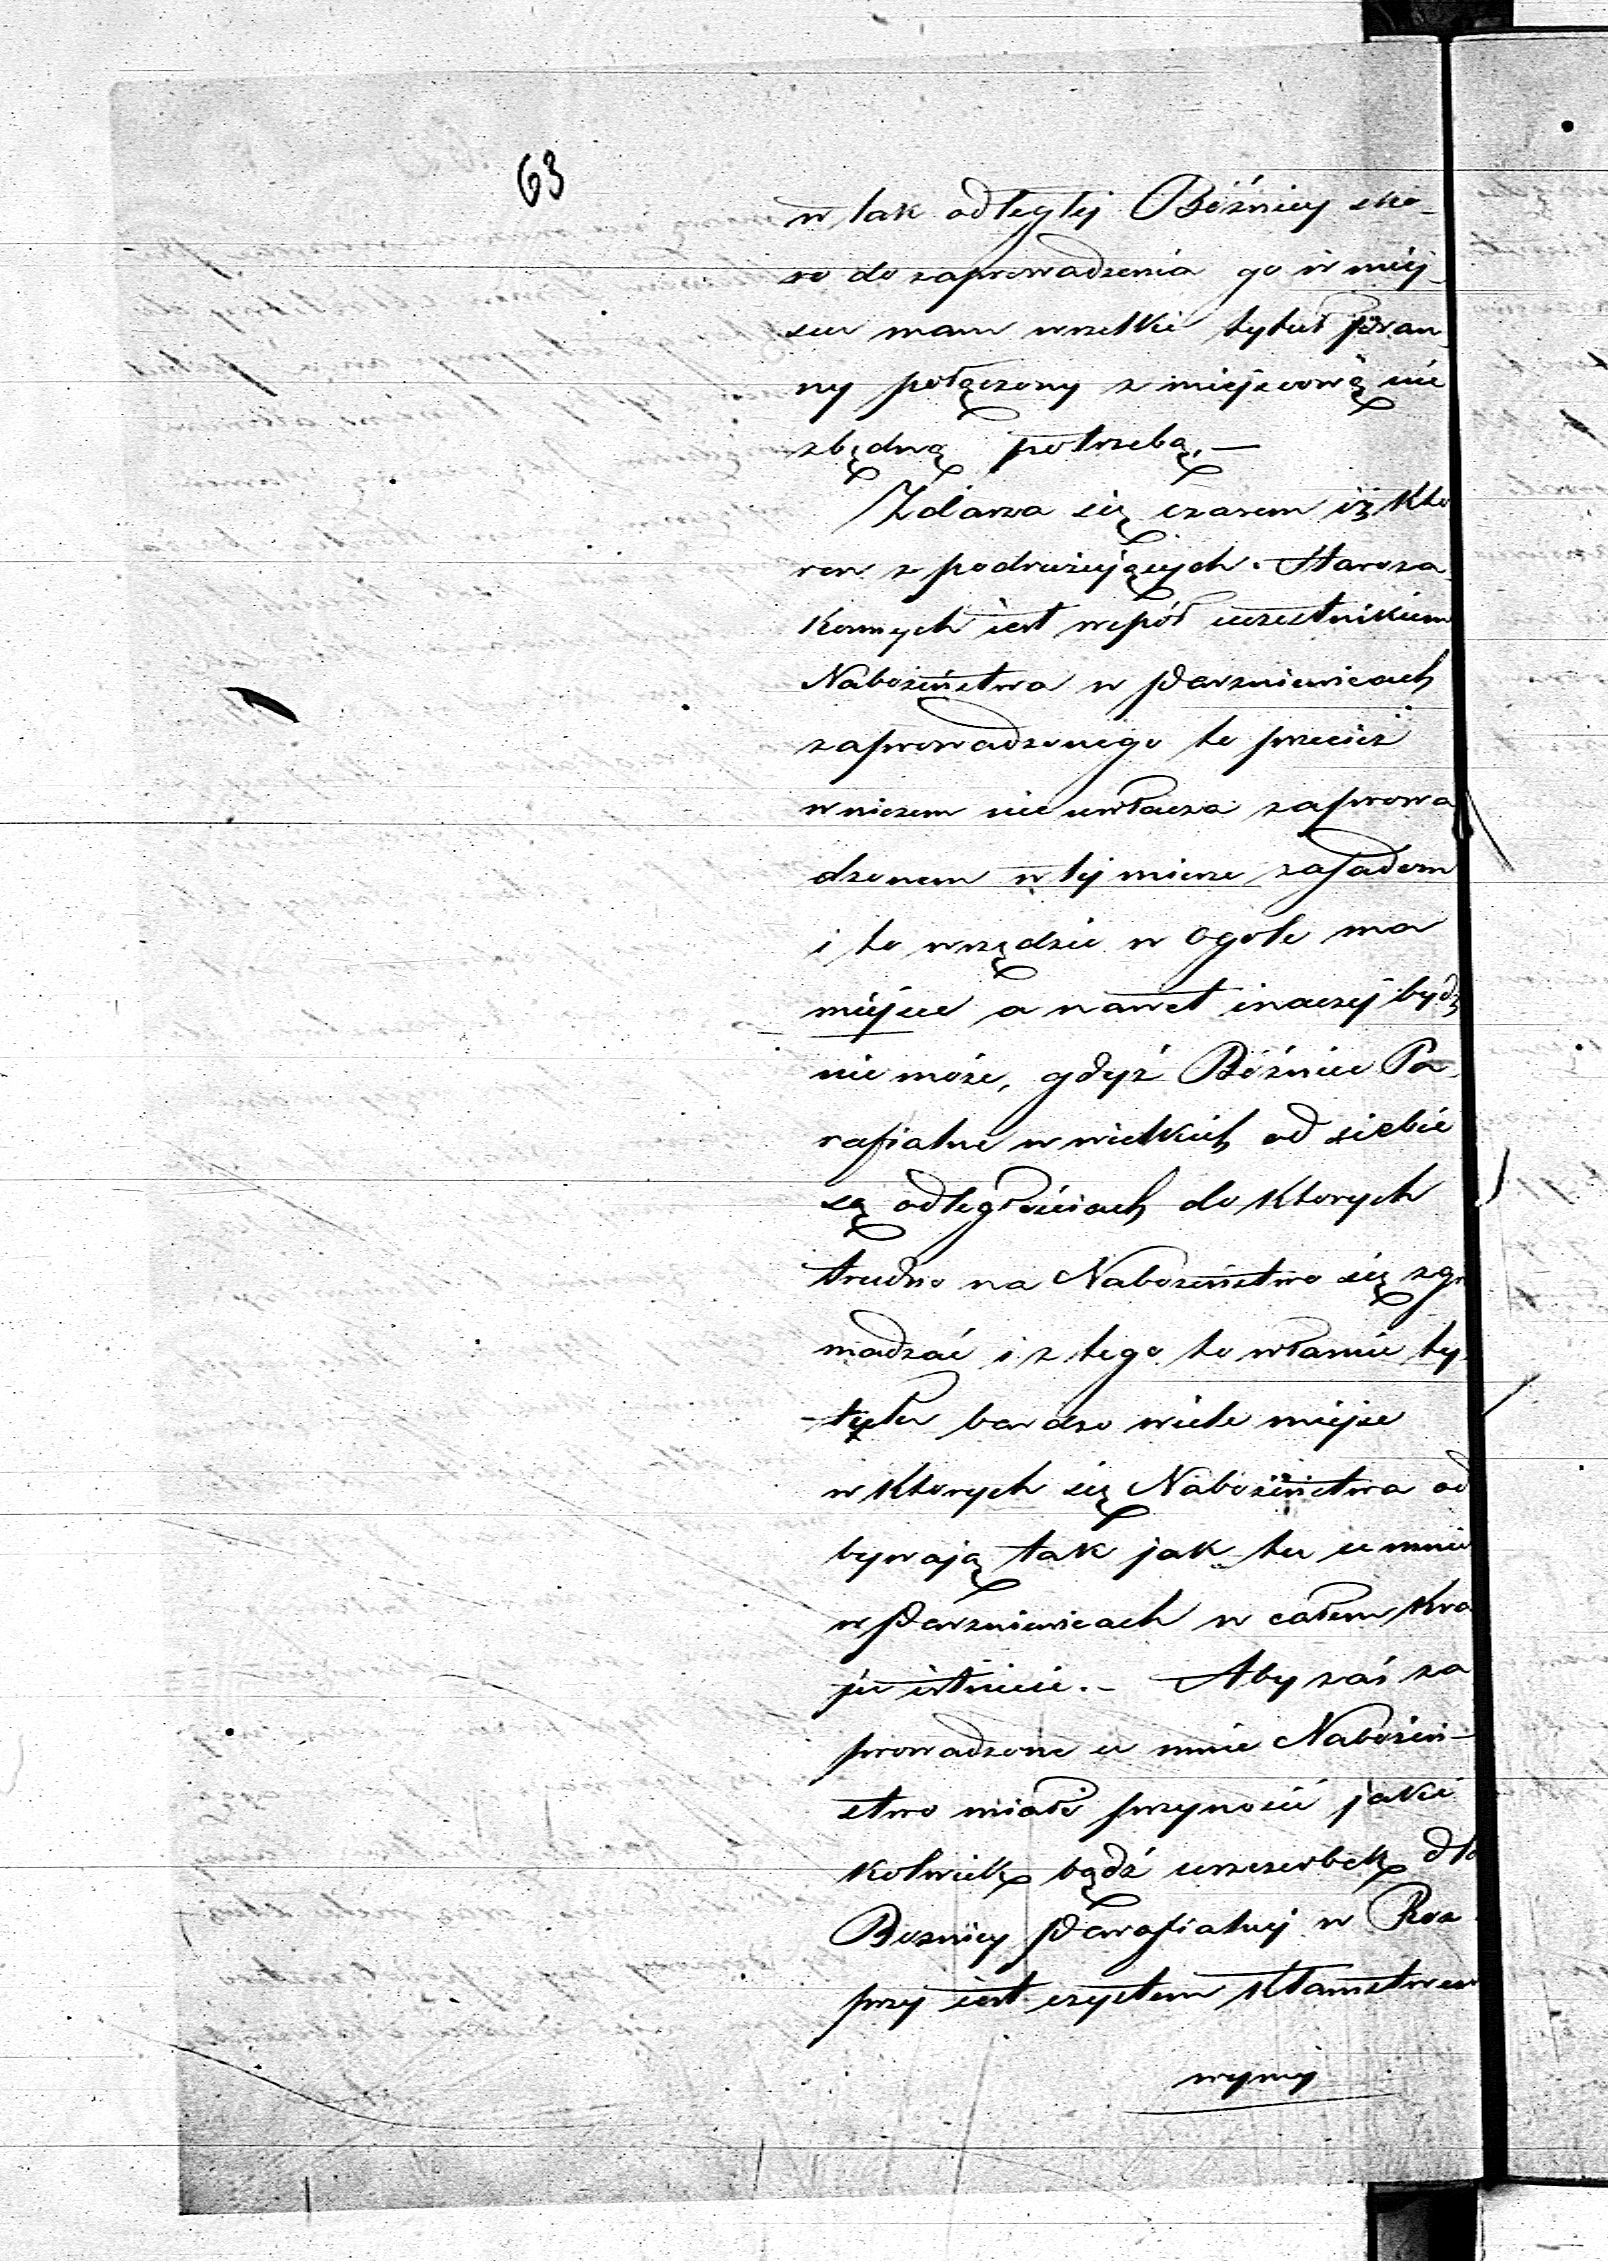 63
w tak odległej Bóźnicy sko-
ro do zaprowadzenia go w miej-
scu mam wszelki tytuł praw
ny połączony z miejscową nie
zbędną potrzebą. —
Zdarza się czasem iż kto
ren z podrużujących Staroza
konnych jest wspoł uczestnikiem
Nabożeństwa w Parzniewicach
zaprowadzonego to przecież
w niczem nie uwłacza zaprowa
dzonem w tej mierze zasadom
i to wszędzie w ogole ma
miejsce a nawet inaczej bydź
nie może, gdyż Bóźnice Pa-
rafialne w wielkich od siebie
są odległościach do ktorych
trudno na Nabożeństwo się zgro
madzać i z tego to właśnie ty-
-tułu bardzo wiele miejsc
w ktorych się Nabożeństwa od
bywają tak jak tu u mnie
w Parzniewicach w całem Kra
ju istnieie. – Aby zaś za
prowadzone u mnie Nabożeń-
stwo miało przynosić jaki
kolwiek bądź uszczerbek dla
Boznicy Parafialnej w Roz-
przy jest czystem kłamstwem
wymy